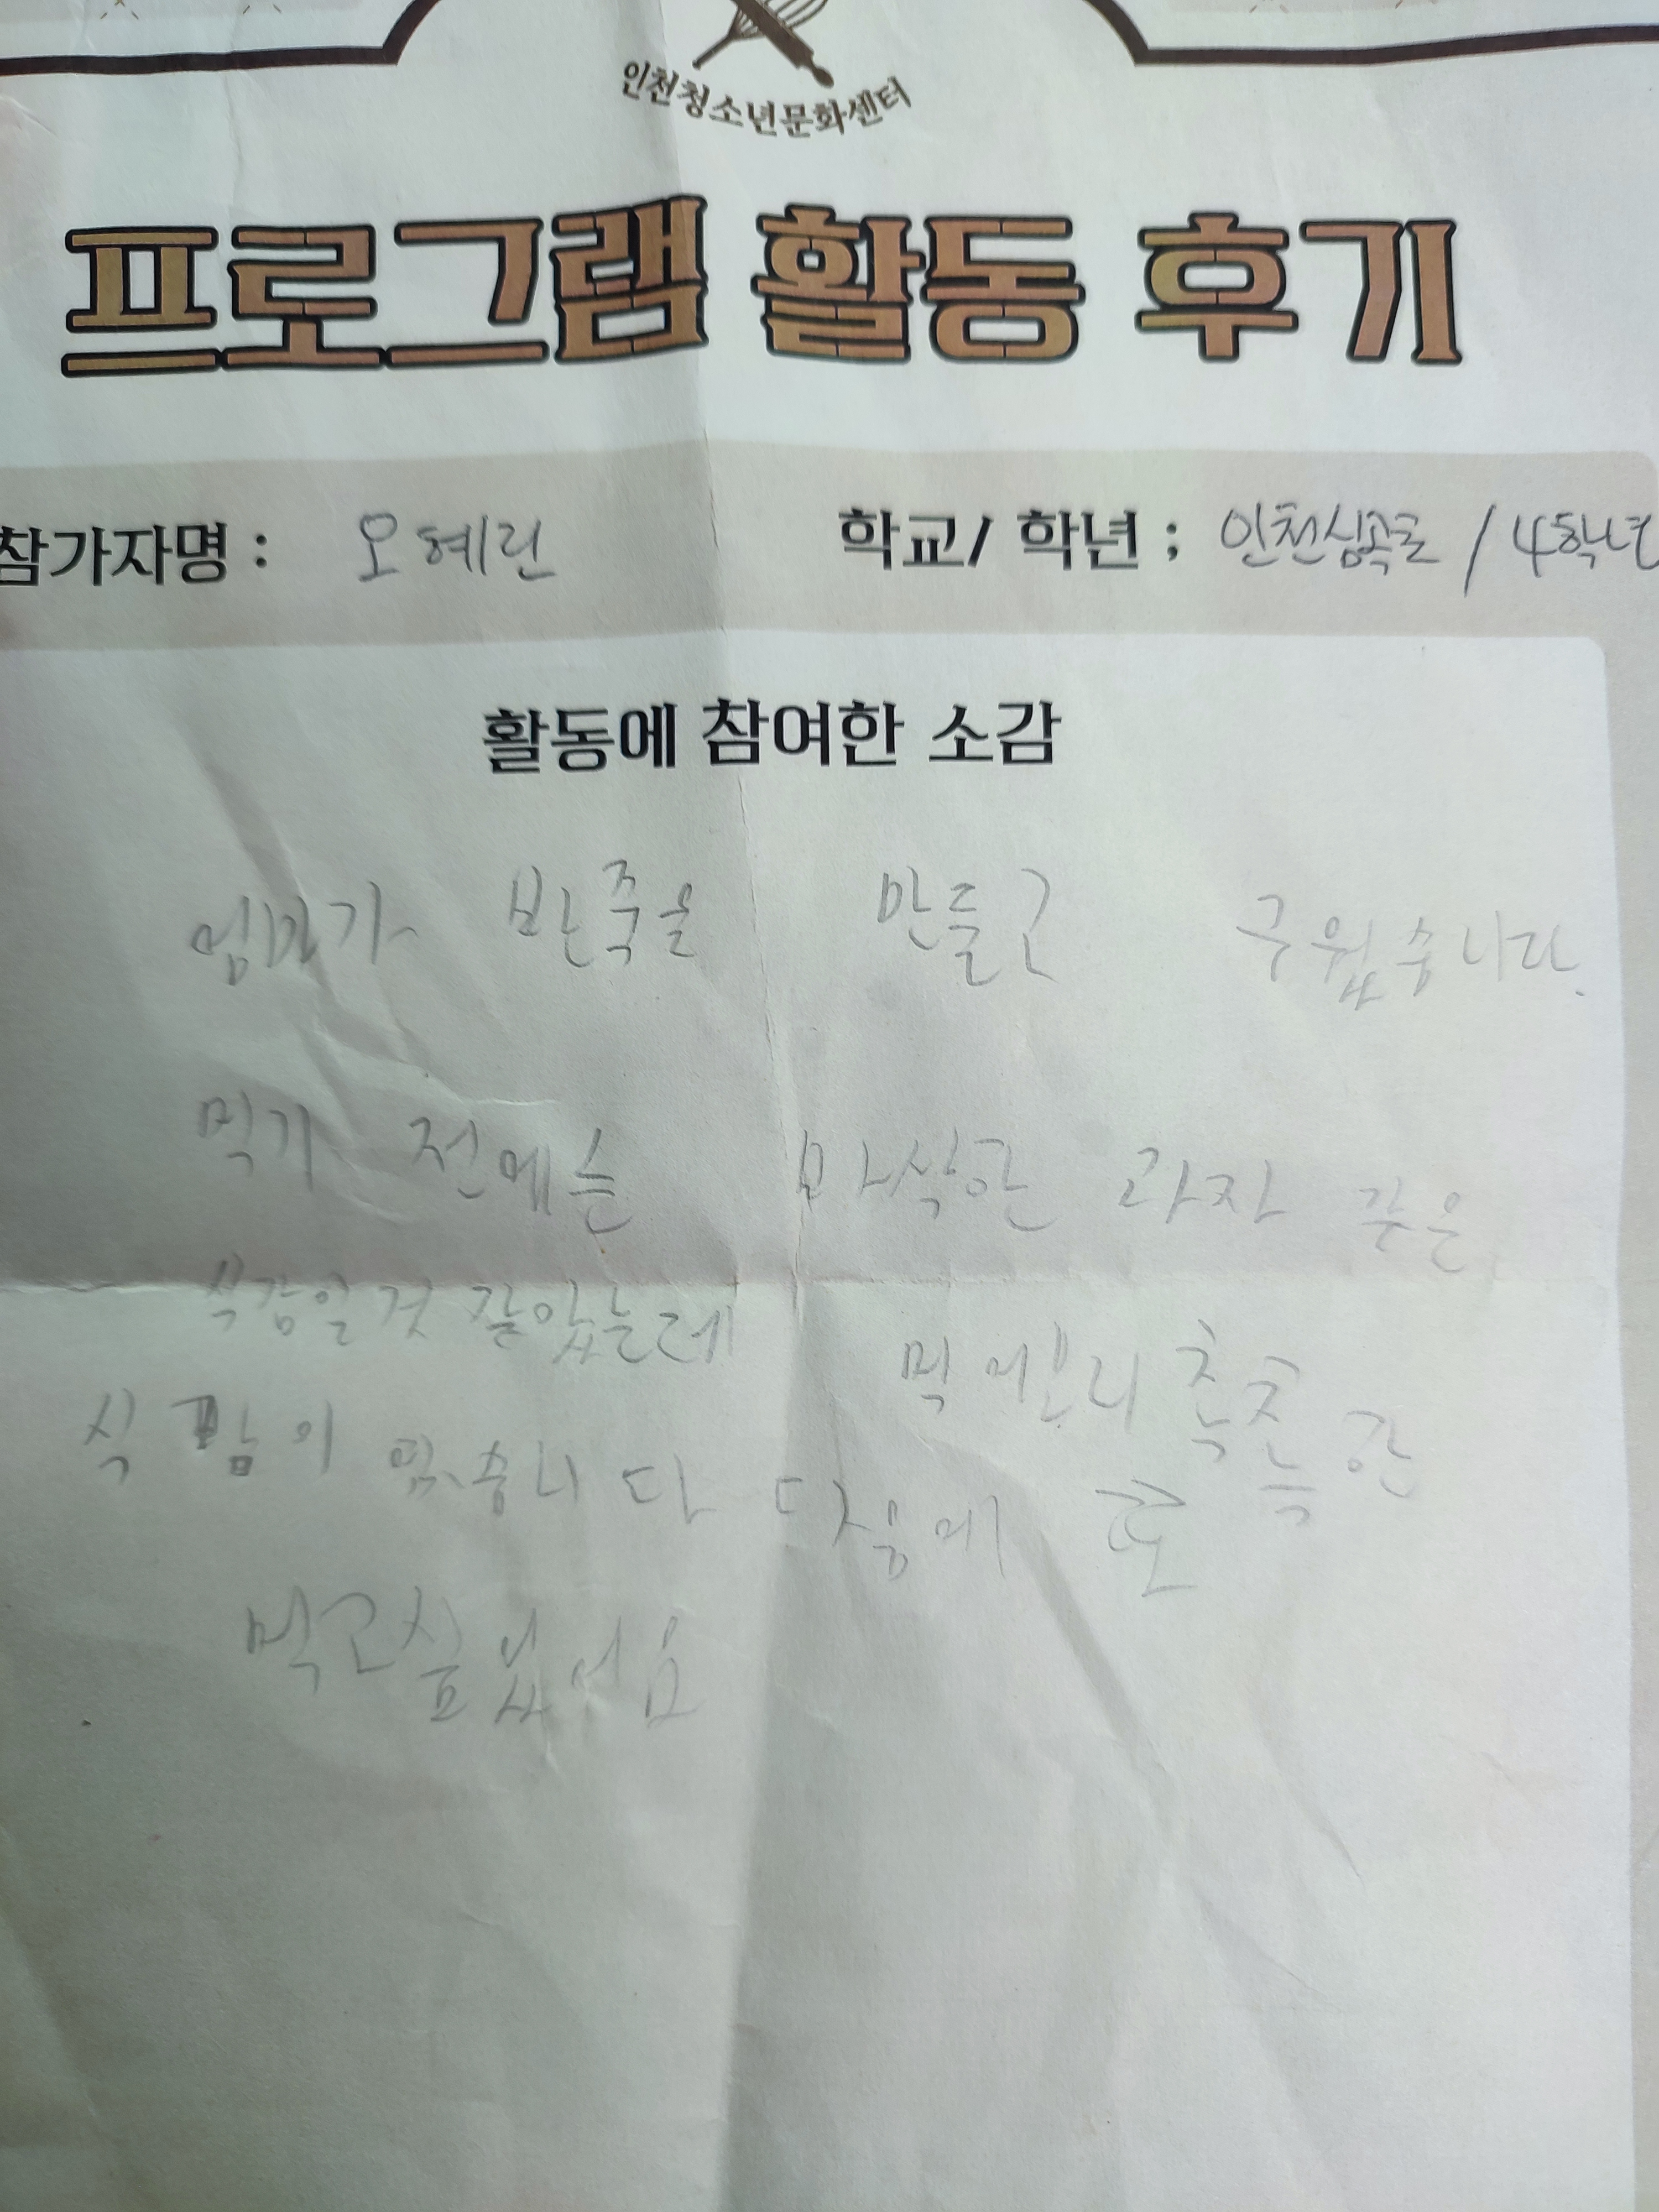 인천청소년문화센터
프로그램 활동 후기
참가자명 : 오혜린 학교/ 학년 ; 인천심곡초 / 4학년
활동에 참여한 소감
엄마가 반죽을 만들고 구웠습니다.
먹기 전에는 바삭한 과자 같은
식감일것 같았는데 먹어보니 촉촉한
식감이 였습니다 다음에 또
먹고싶었어요